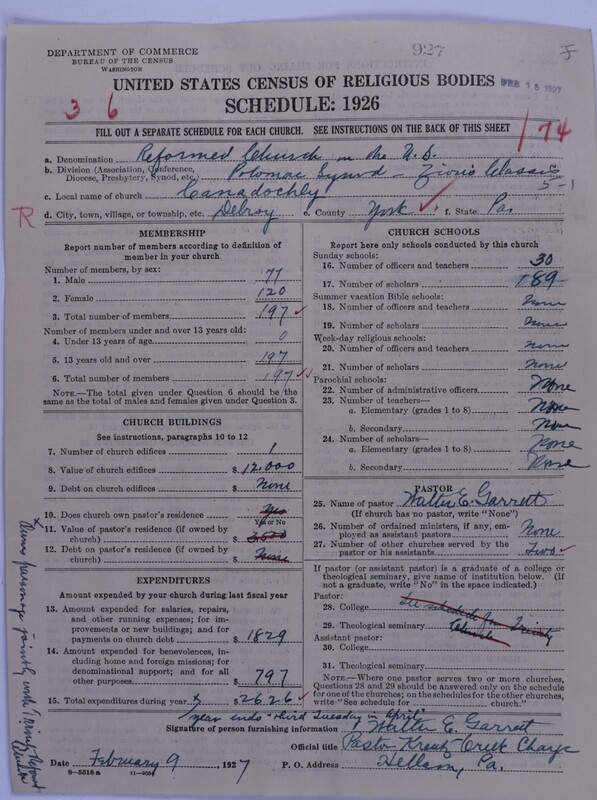 927
DEPARTMENT OF COMMERCE
BUREAU OF THE CENSUS
WASHINGTON
UNITED STATES CENSUS OF RELIGIOUS BODIES
FEB 15 1927
SCHEDULE: 1926
3 6
174
FILL OUT A SEPARATE SCHEDULE FOR EACH CHURCH. SEE INSTRUCTIONS ON THE BACK OF THIS SHEET
a. Denomination Reformed Church in the U.S.
b. Division (Association, Conference, Diocese, Presbytery, Synod, etc.) Potomac Synod - Zion's Classis
5-1
c. Local name of church Canadochly
R
d. City, town, village, or township, etc. Delroy e. County York ✓ f. State Pa.
MEMBERSHIP
Report number of members according to definition of member in your church
Number of members, by sex:
1. Male 77
2. Female 120
3. Total number of members 197 ✓
Number of members under and over 13 years old:
4. Under 13 years of age 0
5. 13 years old and over 197
6. Total number of members 197 ✓
NOTE.—The total given under Question 6 should be the same as the total of males and females given under Question 3.
CHURCH BUILDINGS
See instructions, paragraphs 10 to 12
7. Number of church edifices 1
8. Value of church edifices $ 12,000
9. Debt on church edifices $ None
10. Does church own pastor's residence Yes
Yes or No
11. Value of pastor's residence (if owned by church) $ 3,500
12. Debt on pastor's residence (if owned by church) $ None
x Owns parsonage jointly with Trinity Reformed Church
EXPENDITURES
Amount expended by your church during last fiscal year
13. Amount expended for salaries, repairs, and other running expenses; for improvements or new buildings; and for payments on church debt $ 1829
14. Amount expended for benevolences, including home and foreign missions; for denominational support; and for all other purposes $ 797
15. Total expenditures during year $ 2626 ✓
CHURCH SCHOOLS
Report here only schools conducted by this church
Sunday schools:
16. Number of officers and teachers 30
17. Number of scholars 189
Summer vacation Bible schools:
18. Number of officers and teachers None
19. Number of scholars None
Week-day religious schools:
20. Number of officers and teachers None
21. Number of scholars None
Parochial schools:
22. Number of administrative officers None
23. Number of teachers—
a. Elementary (grades 1 to 8) None
b. Secondary None
24. Number of scholars—
a. Elementary (grades 1 to 8) None
b. Secondary None
PASTOR
25. Name of pastor Walter E. Garrett
(If church has no pastor, write "None")
26. Number of ordained ministers, if any, employed as assistant pastors None
27. Number of other churches served by the pastor or his assistants two ✓
If pastor (or assistant pastor) is a graduate of a college or theological seminary, give name of institution below. (If not a graduate, write "No" in the space indicated.)
Pastor:
28. College See schedule for Trinity
29. Theological seminary Church
Assistant pastor:
30. College
31. Theological seminary
NOTE.—Where one pastor serves two or more churches, Questions 28 and 29 should be answered only on the schedule for one of the churches; on the schedules for the other churches, write "See schedule for ______ church."
year ends "third Tuesday in April"
Signature of person furnishing information Walter E. Garrett
Official title Pastor Kreutz Creek Charge
Date February 9, 1927
P. O. Address Hellam, Pa.
8-5518a 11-9051